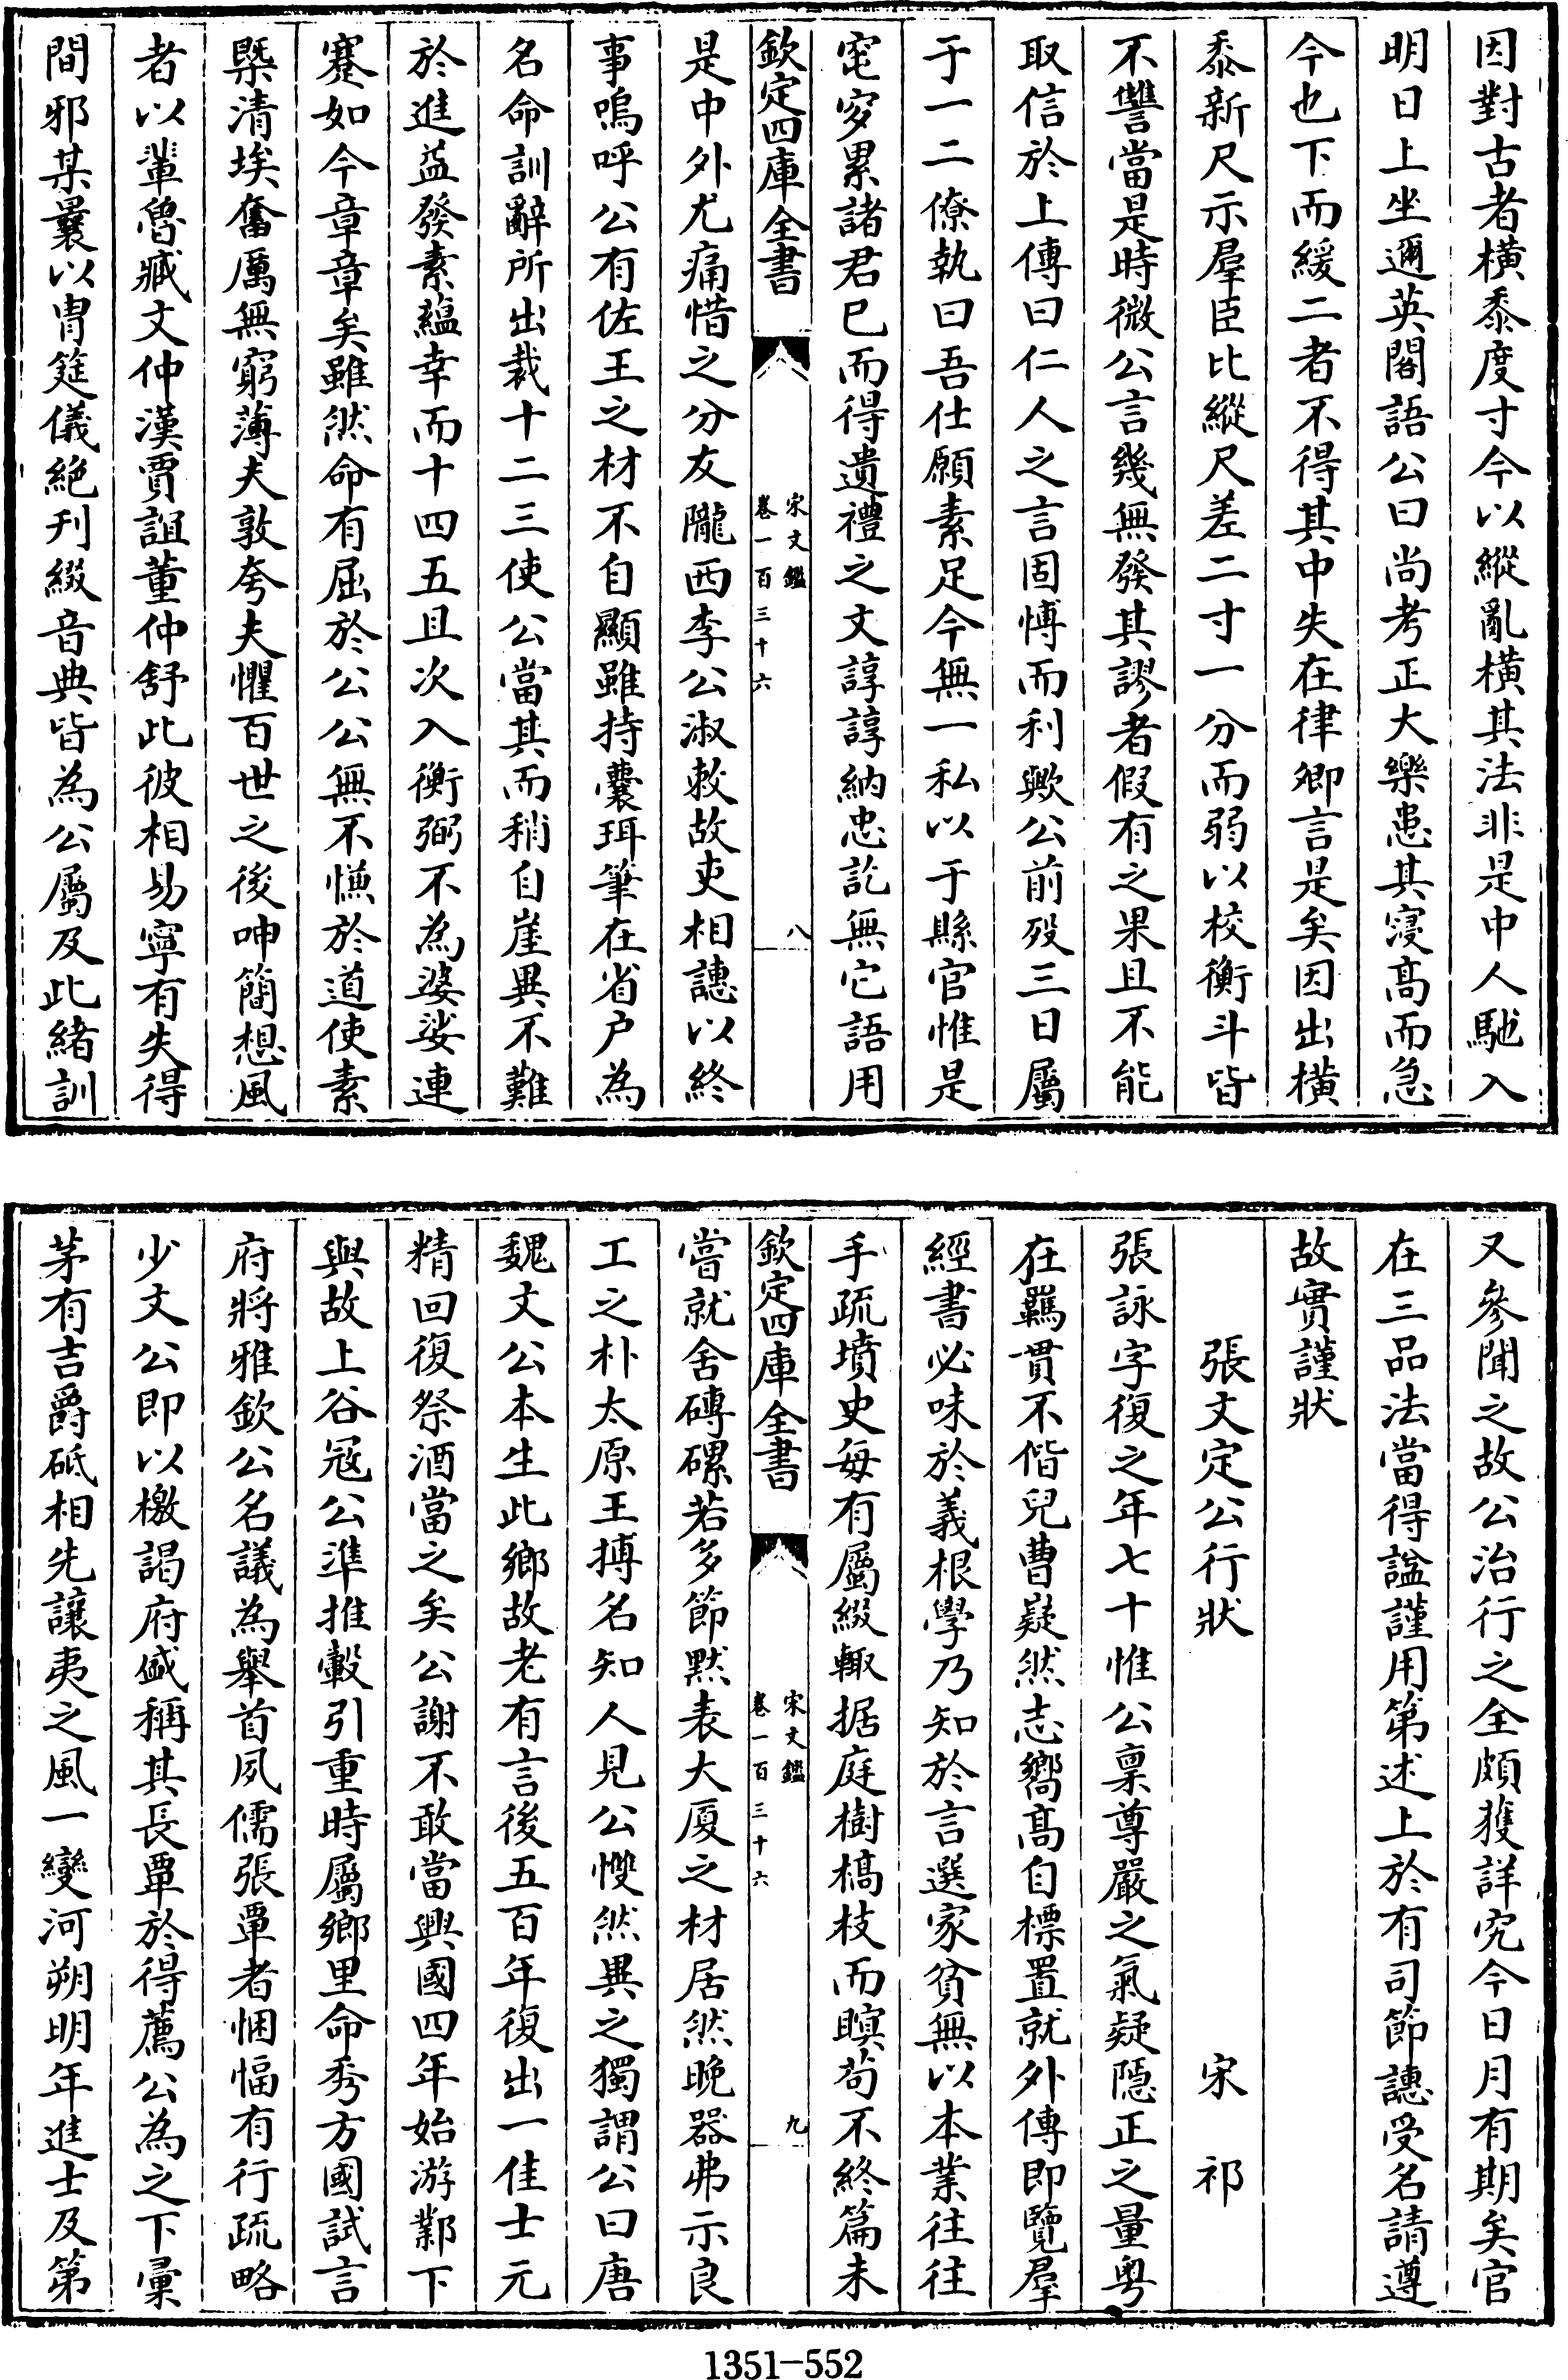 因對古者橫黍度寸今以縱亂橫其法非是中人馳入
明日上坐邇英閣語公曰尚考正大樂患其寖高而急
今也下而緩二者不得其中失在律卿言是矣因出橫
黍新尺示羣臣比縱尺差二寸一分而弱以校衡斗皆
不讐當是時微公言幾無發其謬者假有之果且不能
取信於上傳曰仁人之言固愽而利歟公前歿三日屬
于一二僚執曰吾仕願素足今無一私以于縣官惟是
窀穸累諸君已而得遺禮之文諄諄納忠訖無它語用
欽定四庫全書
宋文鑑
卷一百三十六
八
是中外尤痛惜之分友隴西李公淑敕故吏相譓以終
事嗚呼公有佐王之材不自顯雖持囊珥筆在省户為
名命訓辭所出裁十二三使公當其而稍自崖異不難
於進益發素蘊幸而十四五且次入衡弼不為婆娑連
蹇如今章章矣雖然命有屈於公公無不慊於道使素
槩清埃奮厲無窮薄夫敦夸夫懼百世之後呻簡想風
者以軰魯臧文仲漢賈誼董仲舒此彼相易寧有失得
間邪某曩以冑筵儀絶刋綴音典皆為公屬及此緒訓
又參聞之故公治行之全頗獲詳究今日月有期矣官
在三品法當得諡謹用第述上於有司節譓受名請遵
故實謹狀
張文定公行狀 宋祁
張詠字復之年七十惟公禀尊嚴之氣疑隱正之量粤
在羈貫不偕兒曹疑然志嚮高自標置就外傳即覽羣
經書必味於義根學乃知於言選家貧無以本業往往
手疏墳史每有屬綴輙据庭樹槁枝而瞑苟不終篇未
欽定四庫全書
宋文鑑
卷一百三十六
九
嘗就舍磚磥若多節黙表大厦之材居然晩器弗示良
工之朴太原王搏名知人見公㦬然異之獨謂公曰唐
魏文公本生此鄉故老有言後五百年復出一佳士元
精回復祭酒當之矣公謝不敢當興國四年始游鄴下
與故上谷寇公準推轂引重時屬鄉里命秀方國試言
府將雅欽公名議為舉首夙儒張覃者悃愊有行疏略
少文公即以檄謁府盛稱其長覃於得薦公為之下彙
茅有吉爵砥相先讓夷之風一變河朔明年進士及第
1351-552